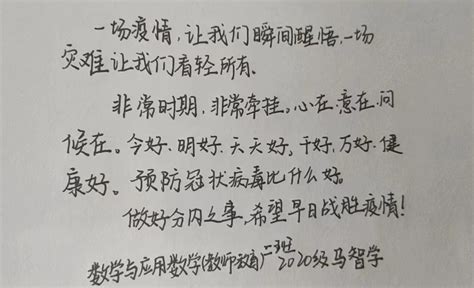 一场疫情,让我们瞬间醒悟,一场
灾难让我们看轻所有.
非常时期,非常牵挂。心在.意在.问
候在。今好.明好.天天好,千好,万好.健
康好。预防冠状病毒比什么好。
做好分内之事,希望早日战胜疫情!
数学与应用数学(教师教育)二班2020级马智学